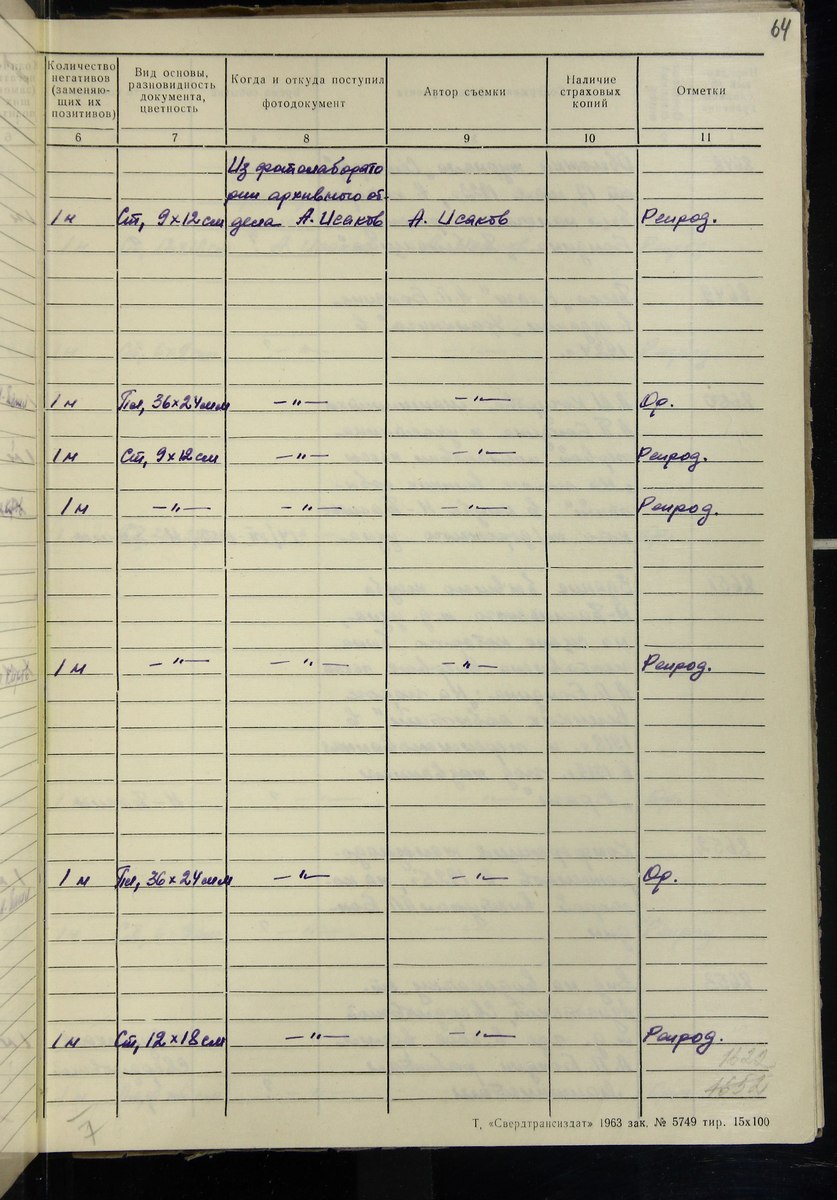 64
Количество негативов (заменяю- щих их позитивов)
Вид основы, разновидность документа, цветность
Когда и откуда поступил фотодокумент
Автор съемки
Наличие страховых копий
Отметки
6 7 8 9 10 11
Из фотолаборато
рии архивного от-
1 н Ст, 9×12 см дела А. Исаков А. Исаков Репрод.
1 н Пл, 36×24 мм —"— —"— Ор.
1 н Ст, 9×12 см —"— —"— Репрод.
1 н —"— —"— —"— Репрод.
1 н —"— —"— —"— Репрод.
1 н Пл, 36×24 мм —"— —"— Ор.
1 н Ст, 12×18 см —"— —"— Репрод.
7
Т. «Свердтрансиздат» 1963 зак. № 5749 тир. 15х100